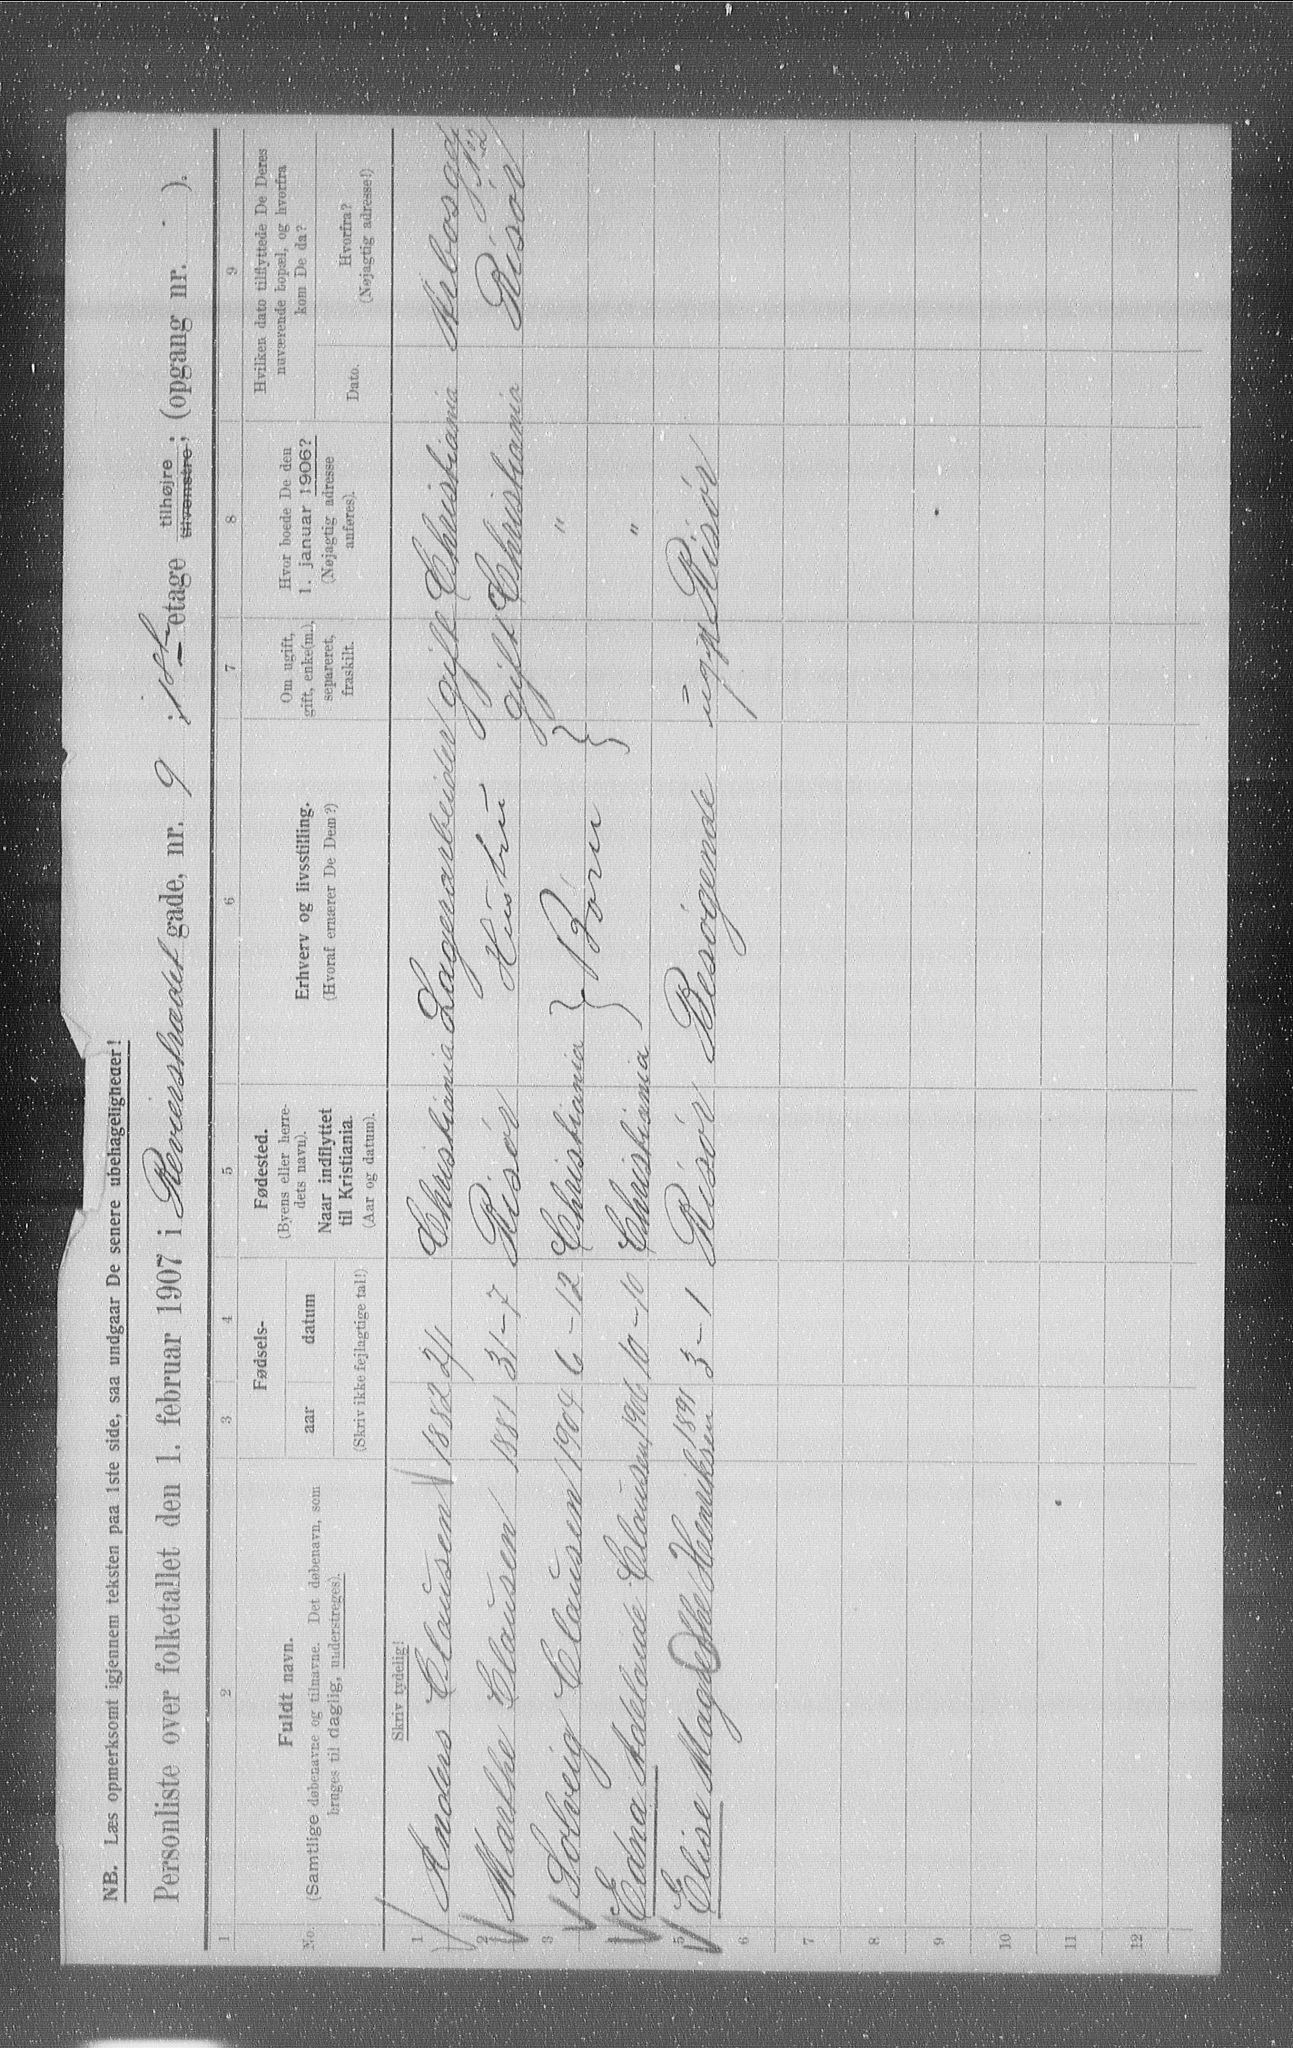 NB. Læs opmerksomt igjennem teksten paa 1ste side, saa undgaar De senere ubehageligheder!
Personliste over folketallet den 1. februar 1907 i Revierstrædet gade, nr. 9 ; 1st etage tilhøjre tilvenstre ; (opgang nr. ).
1 2 3 4 5 6 7 8 9
No.
Fuldt navn.
(Samtlige døbenavne og tilnavne. Det døbenavn, som
bruges til daglig, understreges).
Fødsels-
aar datum
(Skriv ikke fejlagtige tal!)
Fødested.
(Byens eller herre-
dets navn).
Naar indflyttet
til Kristiania.
(Aar og datum).
Erhverv og livsstilling.
(Hvoraf ernærer De Dem?)
Om ugift,
gift, enke(m.),
separeret,
fraskilt.
Hvor boede De den
1. januar 1906?
(Nøjagtig adresse
anføres).
Hvilken dato tilflyttede De Deres
nuværende bopæl, og hvorfra
kom De da?
Dato.
Hvorfra?
(Nøjagtig adresse!)
Skriv tydelig!
1 Anders Clausen 1882 2/1 Christiania Lagerarbeider gift Christiania
2 Marthe Clausen 1881 31-7 Risør Hustru gift Christiania Risør
3 Solveig Clausen 1904 6-12 Christiania } Børn } "
4 Edna Adelaide Clausen 1906 10-10 Christiania "
5 Elise Magdethe Henriksen 1891 3-1 Risør Besøgende ugift Risør
6
7
8
9
10
11
12